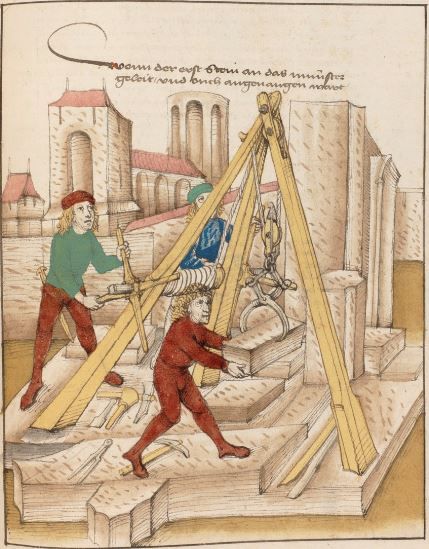 Wonn der erst Stein an das münster
geleit / und ouch angevangen wart